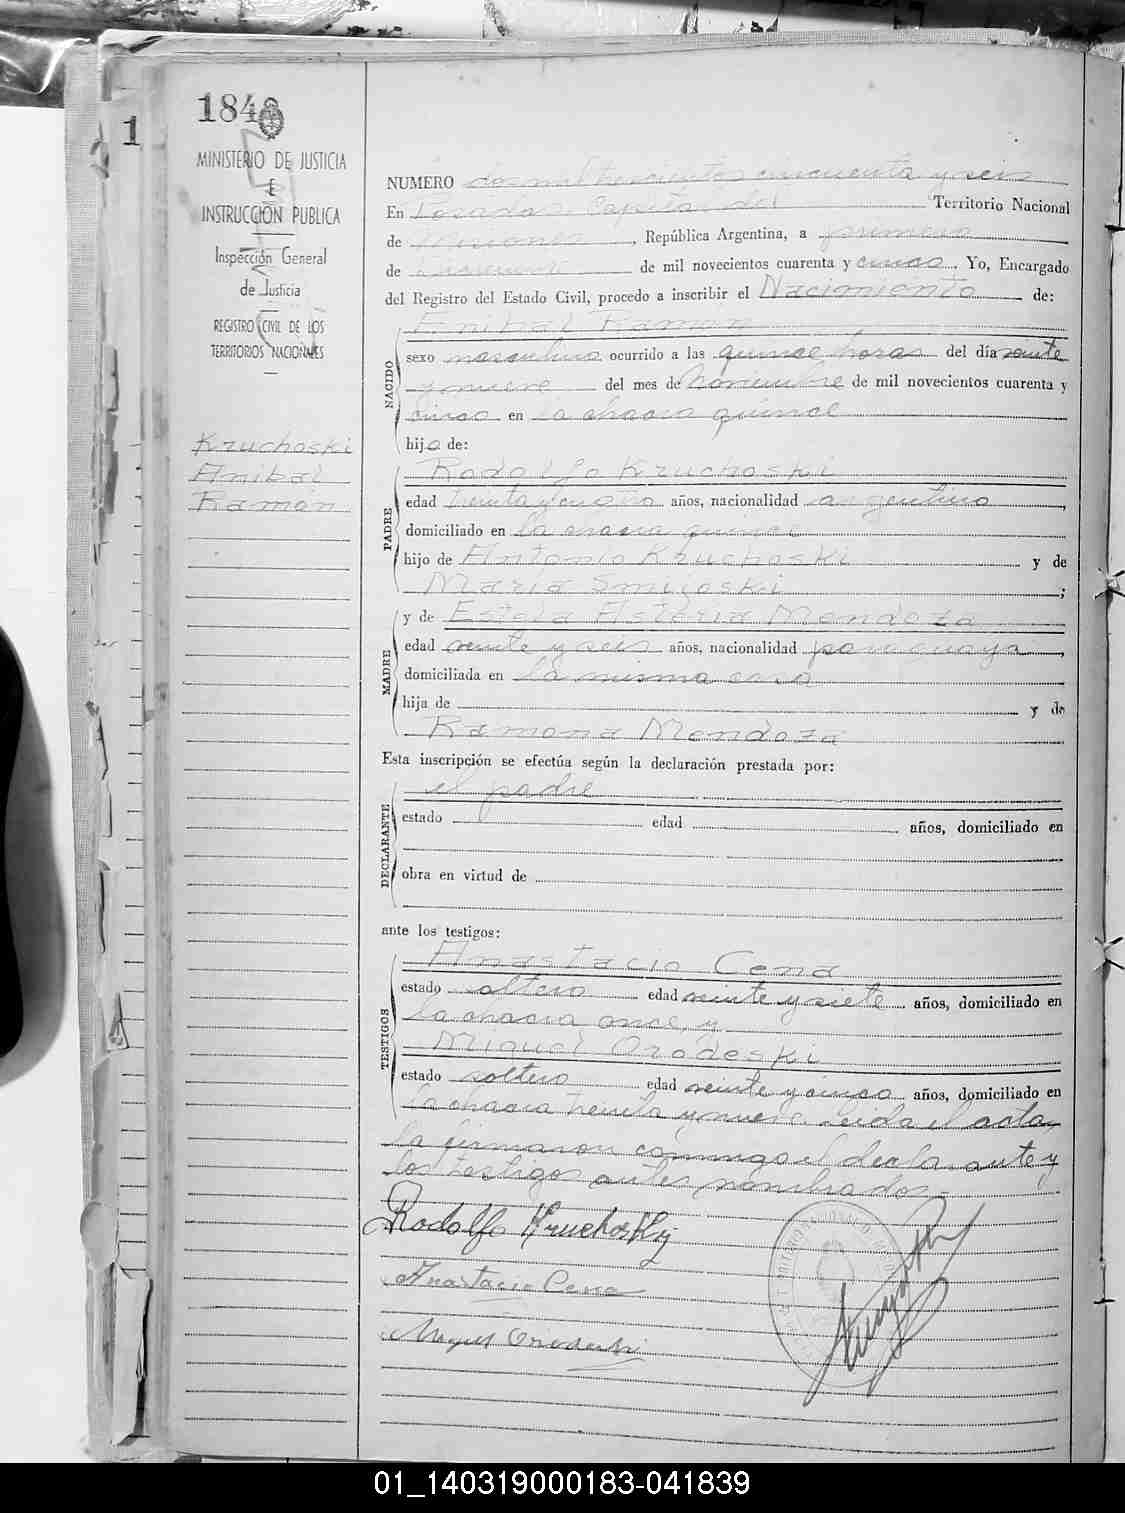 184
1
MINISTERIO DE JUSTICIA
E
INSTRUCCIÓN PUBLICA
Inspección General
de Justicia
REGISTRO CIVIL DE LOS
TERRITORIOS NACIONALES
Kruchoski
Anibal
Ramón
NUMERO dos mil trescientos cincuenta y seis
En Posadas Capital del Territorio Nacional
de Misiones, República Argentina, a primero
de de mil novecientos cuarenta y cinco. Yo, Encargado
del Registro del Estado Civil, procedo a inscribir el Nacimiento de:
NACIDO
Anibal Ramón
sexo masculino ocurrido a las quince horas del día veinte
y nueve del mes de Noviembre de mil novecientos cuarenta y
cinco en la chacra quince
hijo de:
PADRE
Rodolfo Kruchoski
edad treinta y años, nacionalidad argentino,
domiciliado en la chacra quince
hijo de Antonio Kruchoski y de
María ;
MADRE
y de Asteria Mendoza
edad veinte y seis años, nacionalidad paraguaya,
domiciliada en la misma casa
hija de y de
Ramona Mendoza
Esta inscripción se efectúa según la declaración prestada por:
DECLARANTE
el padre
estado edad años, domiciliado en
obra en virtud de
ante los testigos:
TESTIGOS
Anastacio Cena
estado soltero edad veinte y siete años, domiciliado en
la chacra once, y
Miguel Orodeski
estado soltero edad veinte y cinco años, domiciliado en
la chacra treinta y nueve. Leida el acta,
la firmaron conmigo el declarante y
los testigos antes nombrados.-
Rodolfo Kruchoskij
Anastacio Cena
Miguel
01_140319000183-041839